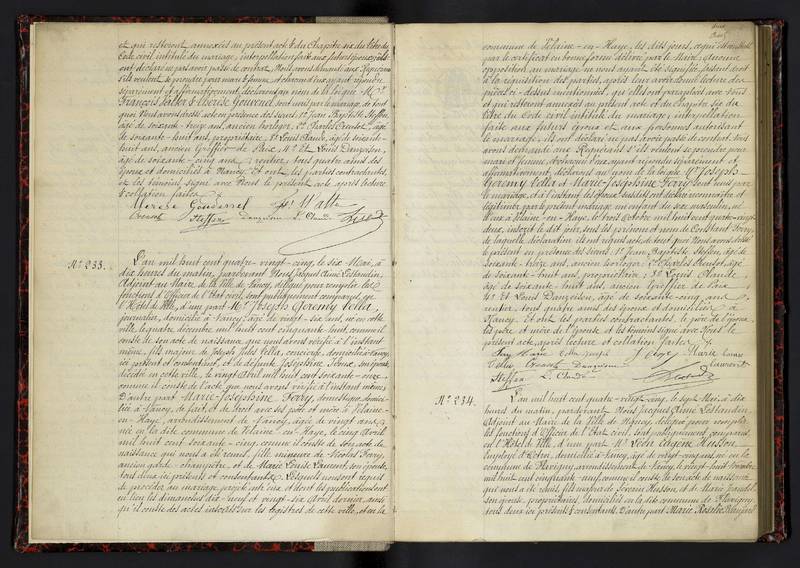 et qui resteront annexés au présent acte & du Chapitre six du titre du
Code civil intitulé du mariage, interpellation faite aux futurs époux, ils
ont déclaré ne pas avoir passé de contrat. Nous avons demandé aux
s'ils veulent se prendre pour mari & femme, et chacun d'eux ayant répondu
séparément et affirmativement, déclarons au nom de la loi que Mr
François & Thérèse sont unis par le mariage, de tout
quoi Nous avons dressé acte en présence des sieurs 1o Jean Baptiste Steffan,
âgé de soixante-treize ans, ancien horloger, 2o Charles Creusot, âgé
de soixante-huit ans, propriétaire, 3o Louis Claude, âgé de soixante-
huit ans, ancien Greffier de Paix, 4o Et Louis Danzeison,
âgé de soixante-cinq ans rentier, tous quatre amis des
époux et domiciliés à Nancy. Et ont, les parties contractantes,
et les témoins signé avec Nous le présent acte, après lecture
& collation faites
Creusot Steffan Danzeison L. Claude
No 233.
L'an mil huit cent quatre-vingt-cinq, le six Mai, à
dix heures du matin, pardevant Nous Jacques Aimé
Adjoint au Maire de la Ville de Nancy, délégué pour remplir les
fonctions d'Officier de l'État civil, sont publiquement comparus, en
l'Hôtel de Ville, d'une part Mr Joseph Geremy Vella,
journalier, domicilié à Nancy, âgé de vingt-six ans, né en cette
ville le quatre décembre mil huit cent cinquante-huit, comme il
conste de son acte de naissance que nous avons vérifié à l'instant
même, fils majeur de Joseph Vella, concierge, domicilié à Nancy,
ici présent et consentant, et de défunte Joséphine son épouse,
décédée en cette ville, le vingt Avril mil huit cent soixante-onze,
comme il conste de l'acte que nous avons vérifié à l'instant même;
D'autre part Marie-Joséphine Ferry, domestique, domici-
liée à Nancy, de fait, et de droit avec ses père et mère à Velaine-
en-Haye, arrondissement de Nancy, âgée de vingt ans,
née en la dite commune de Velaine-en-Haye, le cinq Avril
mil huit cent soixante-cinq, comme il conste de son acte de
naissance qui nous a été remis, fille mineure de Nicolas Ferry,
ancien garde-champêtre, et de Marie Louise Laurent, son épouse,
tous deux ici présents et consentants. Lesquels nous ont requis
de procéder au mariage projeté entre eux et dont les publications ont
eu lieu les dimanches dix-neuf et vingt-six Avril dernier, ainsi
qu'il conste des actes inscrits sur les registres de cette ville, et en la
commune de Velaine-en-Haye, les dits jours, ce qui est constaté
par le certificat en bonne forme délivré par le Maire; aucune
opposition au mariage ne nous ayant été signifiée, faisant droit
à la réquisition des parties, après leur avoir donné lecture des
pièces ci-dessus mentionnées, qu'elles ont paraphées avec Nous
et qui resteront annexées au présent acte et du Chapitre six du
titre du Code civil intitulé du mariage, interpellation
faite aux futurs époux et aux personnes autorisant
le mariage, ils ont déclaré ne pas avoir passé de contrat. Nous
avons demandé aux s'ils veulent se prendre pour
mari et femme, et chacun d'eux, ayant répondu séparément et
affirmativement, déclarons au nom de la loi que Mr Joseph-
Geremy Vella et Marie-Joséphine Ferry sont unis par
le mariage, et à l'instant les époux susdits ont déclaré reconnaître et
légitimer par le présent mariage, un enfant du sexe masculin, né
d'eux à Velaine-en-Haye, le trois Octobre mil huit cent quatre-vingt-
deux, inscrit le dit jour, sous les prénom et nom de Constant Ferry,
de laquelle déclaration ils ont requis acte, de tout quoi Nous avons dressé
le présent en présence des sieurs 1o Jean Baptiste Steffan, âgé de
soixante-treize ans, ancien horloger, 2o Charles Creusot, âgé
de soixante-huit ans, propriétaire, 3o Louis Claude
âgé de soixante-huit ans, ancien Greffier de Paix
4o Et Louis Danzeison, âgé de soixante-cinq ans
rentier, tous quatre amis des époux et domiciliés à
Nancy. Et ont, les parties contractantes, le père de l'époux,
les père et mère de l'épouse et les témoins signé avec Nous le
présent acte, après lecture et collation faites
Ferry Marie Vella Joseph Marie Louise
Vella Creusot Danzeison Laurent
Steffan L. Claude
No 234.
L'an mil huit cent quatre-vingt-cinq, le sept Mai, à dix
heures du matin, pardevant Nous Jacques Aimé
Adjoint au Maire de la Ville de Nancy, délégué pour remplir
les fonctions d'Officier de l'État civil, sont publiquement comparus,
en l'Hôtel de Ville, d'une part Mr Léon Eugène Husson,
Employé domicilié à Nancy, âgé de vingt-cinq ans, né en la
commune de Flavigny, arrondissement de Nancy, le vingt-huit
mil huit cent cinquante-neuf, comme il conste de son acte de naissance
qui nous a été remis, fils majeur de Husson, et de Marie
son épouse, propriétaires, domiciliés en la dite commune de Flavigny,
tous deux ici présents & consentants. D'autre part Marie Rosalie